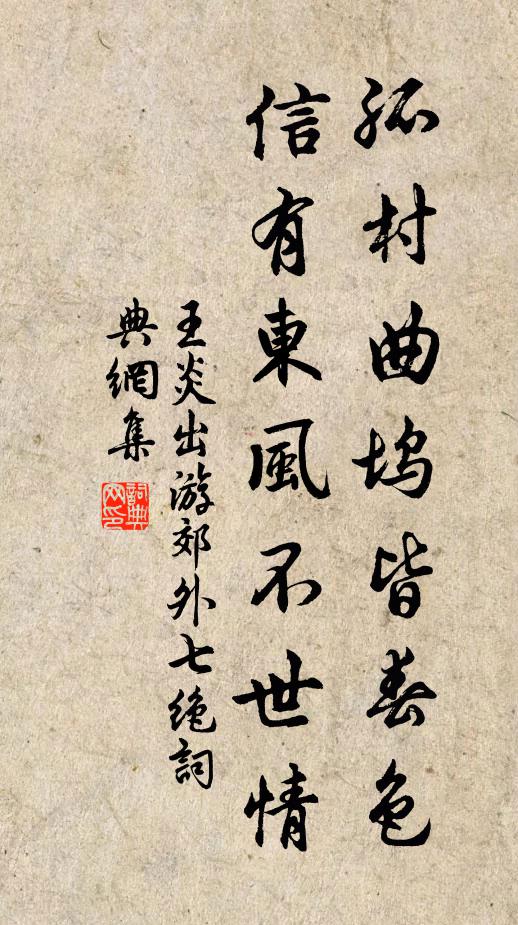 孤村曲塢皆春色
信有東風不世情
王炎出游郊外七絶詞
典網集
詞典网印